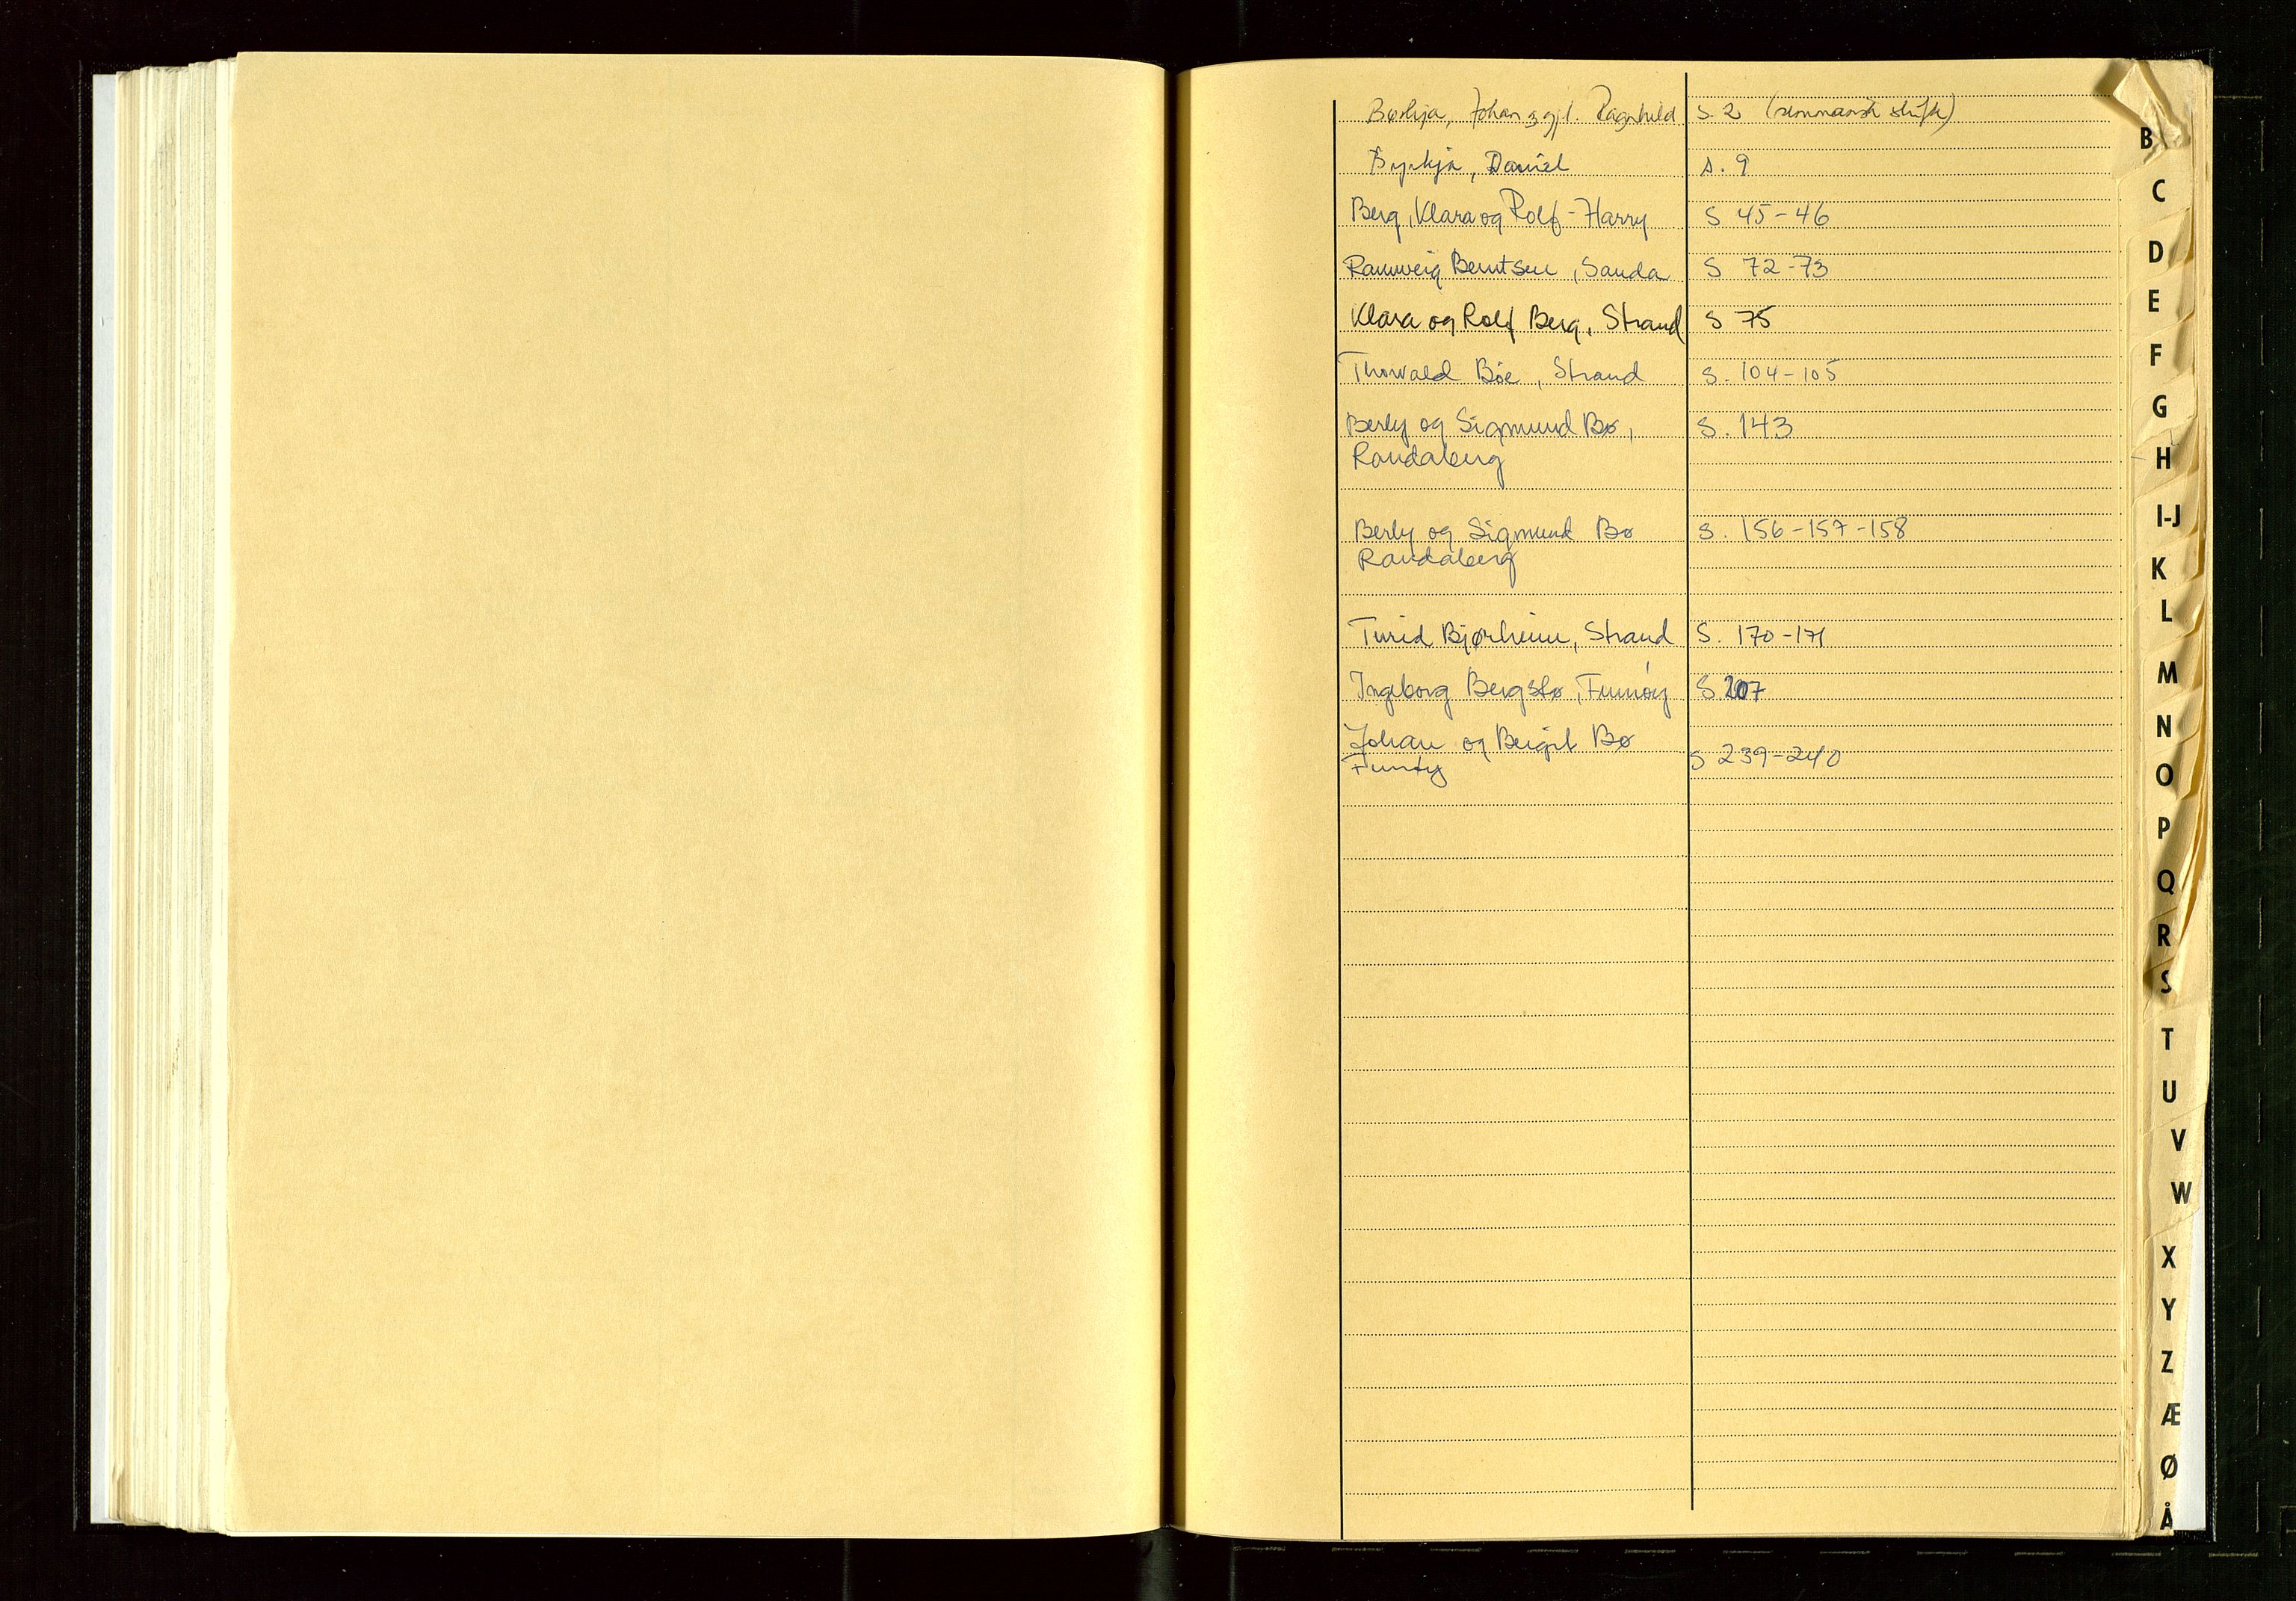 Børkja, Johan og gjl. Ragnhild s. 2 (summarisk skifte)
Byrkja, Daniel s. 9
Berg, Klara og Rolf-Harry S 45-46
Rannveig Berntsen, Sauda S 72-73
Klara og Rolf Berg, Strand S 75
Thorvald Bøe, Strand s. 104-105
Berly og Sigmund Bø, S. 143
Randaberg
Berly og Sigmund Bø s. 156-157-158
Randaberg
Turid Bjørheim, Strand S. 170-171
Ingeborg Bergstø, Finnøy S. 207
Johan og Bergit Bø
Finnøy S 239-240
B
C
D
E
F
G
H
I-J
K
L
M
N
O
P
Q
R
S
T
U
V
W
X
Y
Z
Æ
Ø
Å